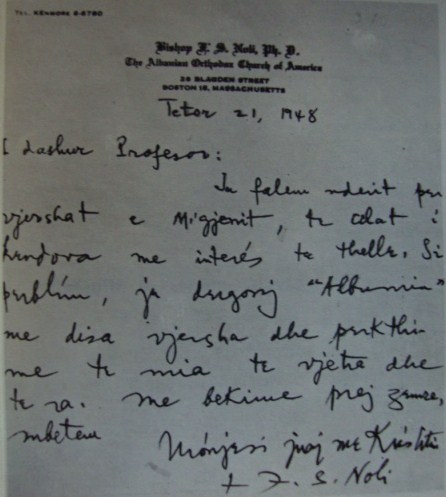 TEL. KENMORE 6-5780
Bishop F. S. Noli, Ph. D.
The Albanian Orthodox Church of America
26 BLAGDEN STREET
BOSTON 16, MASSACHUSETTS
Tetor 21, 1948
I dashur Profesor:
Ju falem nderit per
vjershat e Migjenit, te cilat i
kendova me interés te thelle. Si
perblim, ju dergonj "Albumin"
me disa vjersha dhe perkthi
me te mia te vjetra dhe
te ra. me bekime prej zemre,
mbetem
juaj me Krishtit
+ F. S. Noli